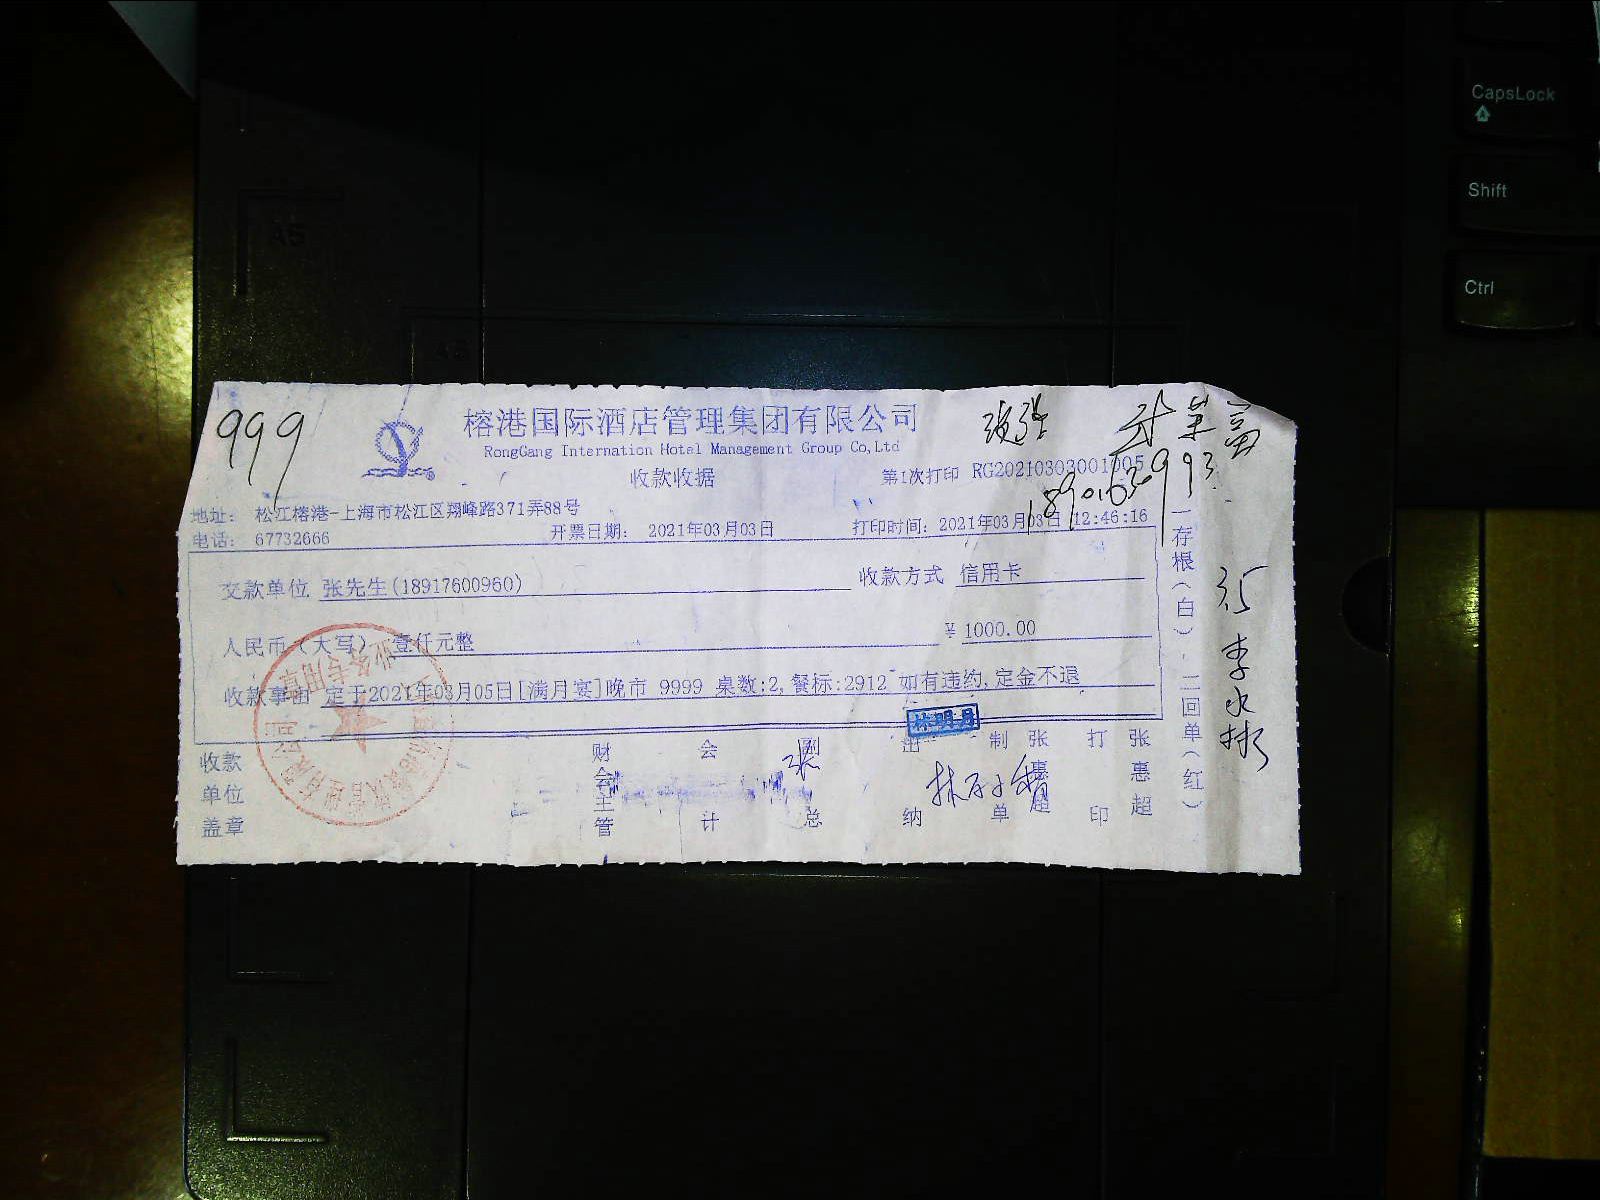 CapsLock
Shift
Ctrl
A5
999
榕港国际酒店管理集团有限公司
RongGang Internation Hotel Management Group Co,Ltd
收款收据
第1次打印 RG20210303001005
地址: 松江榕港-上海市松江区翔峰路371弄88号
电话: 67732666
开票日期: 2021年03月03日
打印时间: 2021年03月03日 12:46:16
交款单位 张先生(18917600960)
收款方式 信用卡
人民币(大写) 壹仟元整
¥ 1000.00
收款事由 定于2021年03月05日[满月宴]晚市 9999 桌数:2,餐标:2912 如有违约,定金不退
业务专用章
林明月
收款单位盖章
财会主管
会计
副总
张
出纳
制单
张惠超
打印
张惠超
一存根(白),二回单(红)
3.5
李永彬